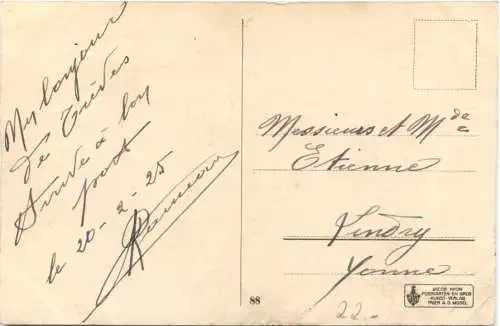 My bonjour
de Trèves
Arrivé à bon
port
le 20-2-25
Messieurs et Mde
Etienne
Lindry
Yonne
88
22.-
JACOB KRON
POSTKARTEN EN GROS
KUNST-VERLAG
TRIER A.D. MOSEL